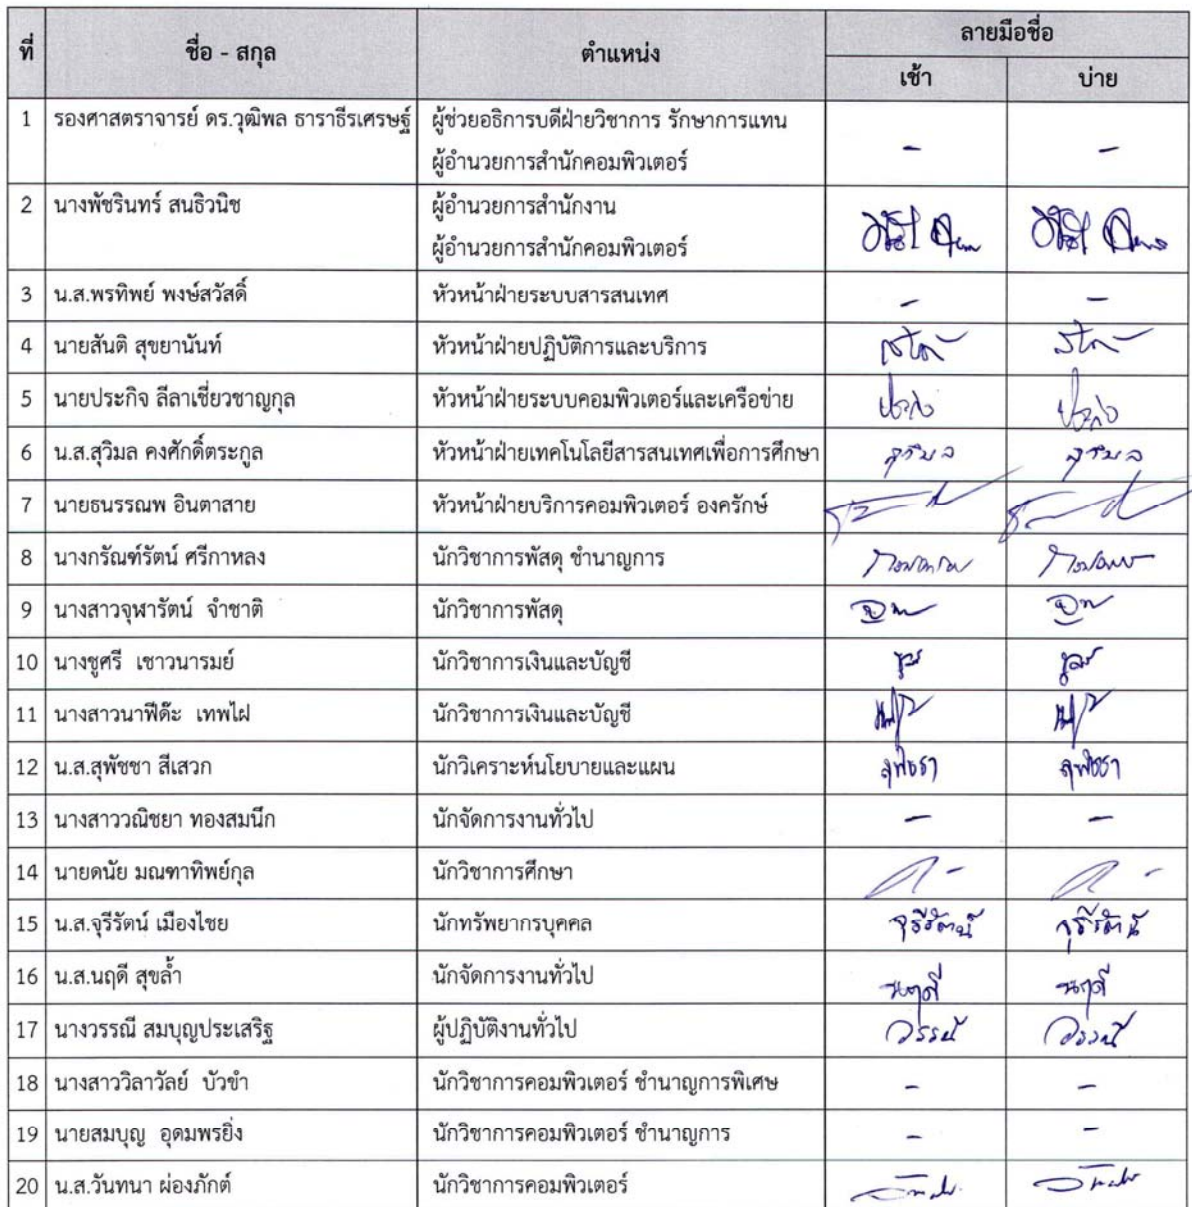 ที่ ชื่อ - สกุล ตำแหน่ง ลายมือชื่อ
เช้า บ่าย
1 รองศาสตราจารย์ ดร.วุฒิพล ธาราธีรเศรษฐ์ ผู้ช่วยอธิการบดีฝ่ายวิชาการ รักษาการแทน - -
ผู้อำนวยการสำนักคอมพิวเตอร์
2 นางพัชรินทร์ สนธิวนิช ผู้อำนวยการสำนักงาน
ผู้อำนวยการสำนักคอมพิวเตอร์
3 น.ส.พรทิพย์ พงษ์สวัสดิ์ หัวหน้าฝ่ายระบบสารสนเทศ - -
4 นายสันติ สุขยานันท์ หัวหน้าฝ่ายปฏิบัติการและบริการ
5 นายประกิจ ลีลาเชี่ยวชาญกุล หัวหน้าฝ่ายระบบคอมพิวเตอร์และเครือข่าย
6 น.ส.สุวิมล คงศักดิ์ตระกูล หัวหน้าฝ่ายเทคโนโลยีสารสนเทศเพื่อการศึกษา สุวิมล สุวิมล
7 นายธนรรณพ อินตาสาย หัวหน้าฝ่ายบริการคอมพิวเตอร์ องครักษ์
8 นางกรัณฑ์รัตน์ ศรีกาหลง นักวิชาการพัสดุ ชำนาญการ
9 นางสาวจุฬารัตน์ จำชาติ นักวิชาการพัสดุ
10 นางชูศรี เชาวนารมย์ นักวิชาการเงินและบัญชี
11 นางสาวนาฟีด๊ะ เทพไฝ นักวิชาการเงินและบัญชี
12 น.ส.สุพัชชา สีเสวก นักวิเคราะห์นโยบายและแผน สุพัชชา สุพัชชา
13 นางสาววณิชยา ทองสมนึก นักจัดการงานทั่วไป - -
14 นายดนัย มณฑาทิพย์กุล นักวิชาการศึกษา
15 น.ส.จุรีรัตน์ เมืองไชย นักทรัพยากรบุคคล จุรีรัตน์ จุรีรัตน์
16 น.ส.นฤดี สุขล้ำ นักจัดการงานทั่วไป นฤดี นฤดี
17 นางวรรณี สมบุญประเสริฐ ผู้ปฏิบัติงานทั่วไป วรรณี วรรณี
18 นางสาววิลาวัลย์ บัวขำ นักวิชาการคอมพิวเตอร์ ชำนาญการพิเศษ - -
19 นายสมบุญ อุดมพรยิ่ง นักวิชาการคอมพิวเตอร์ ชำนาญการ - -
20 น.ส.วันทนา ผ่องภักต์ นักวิชาการคอมพิวเตอร์